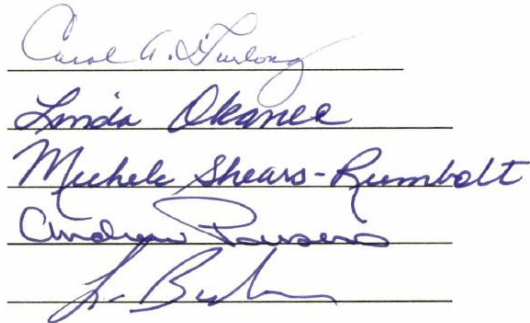 Carol A. Furlong
Linda Okanee
Michele Shears-Rumbolt
Andrew Parsons